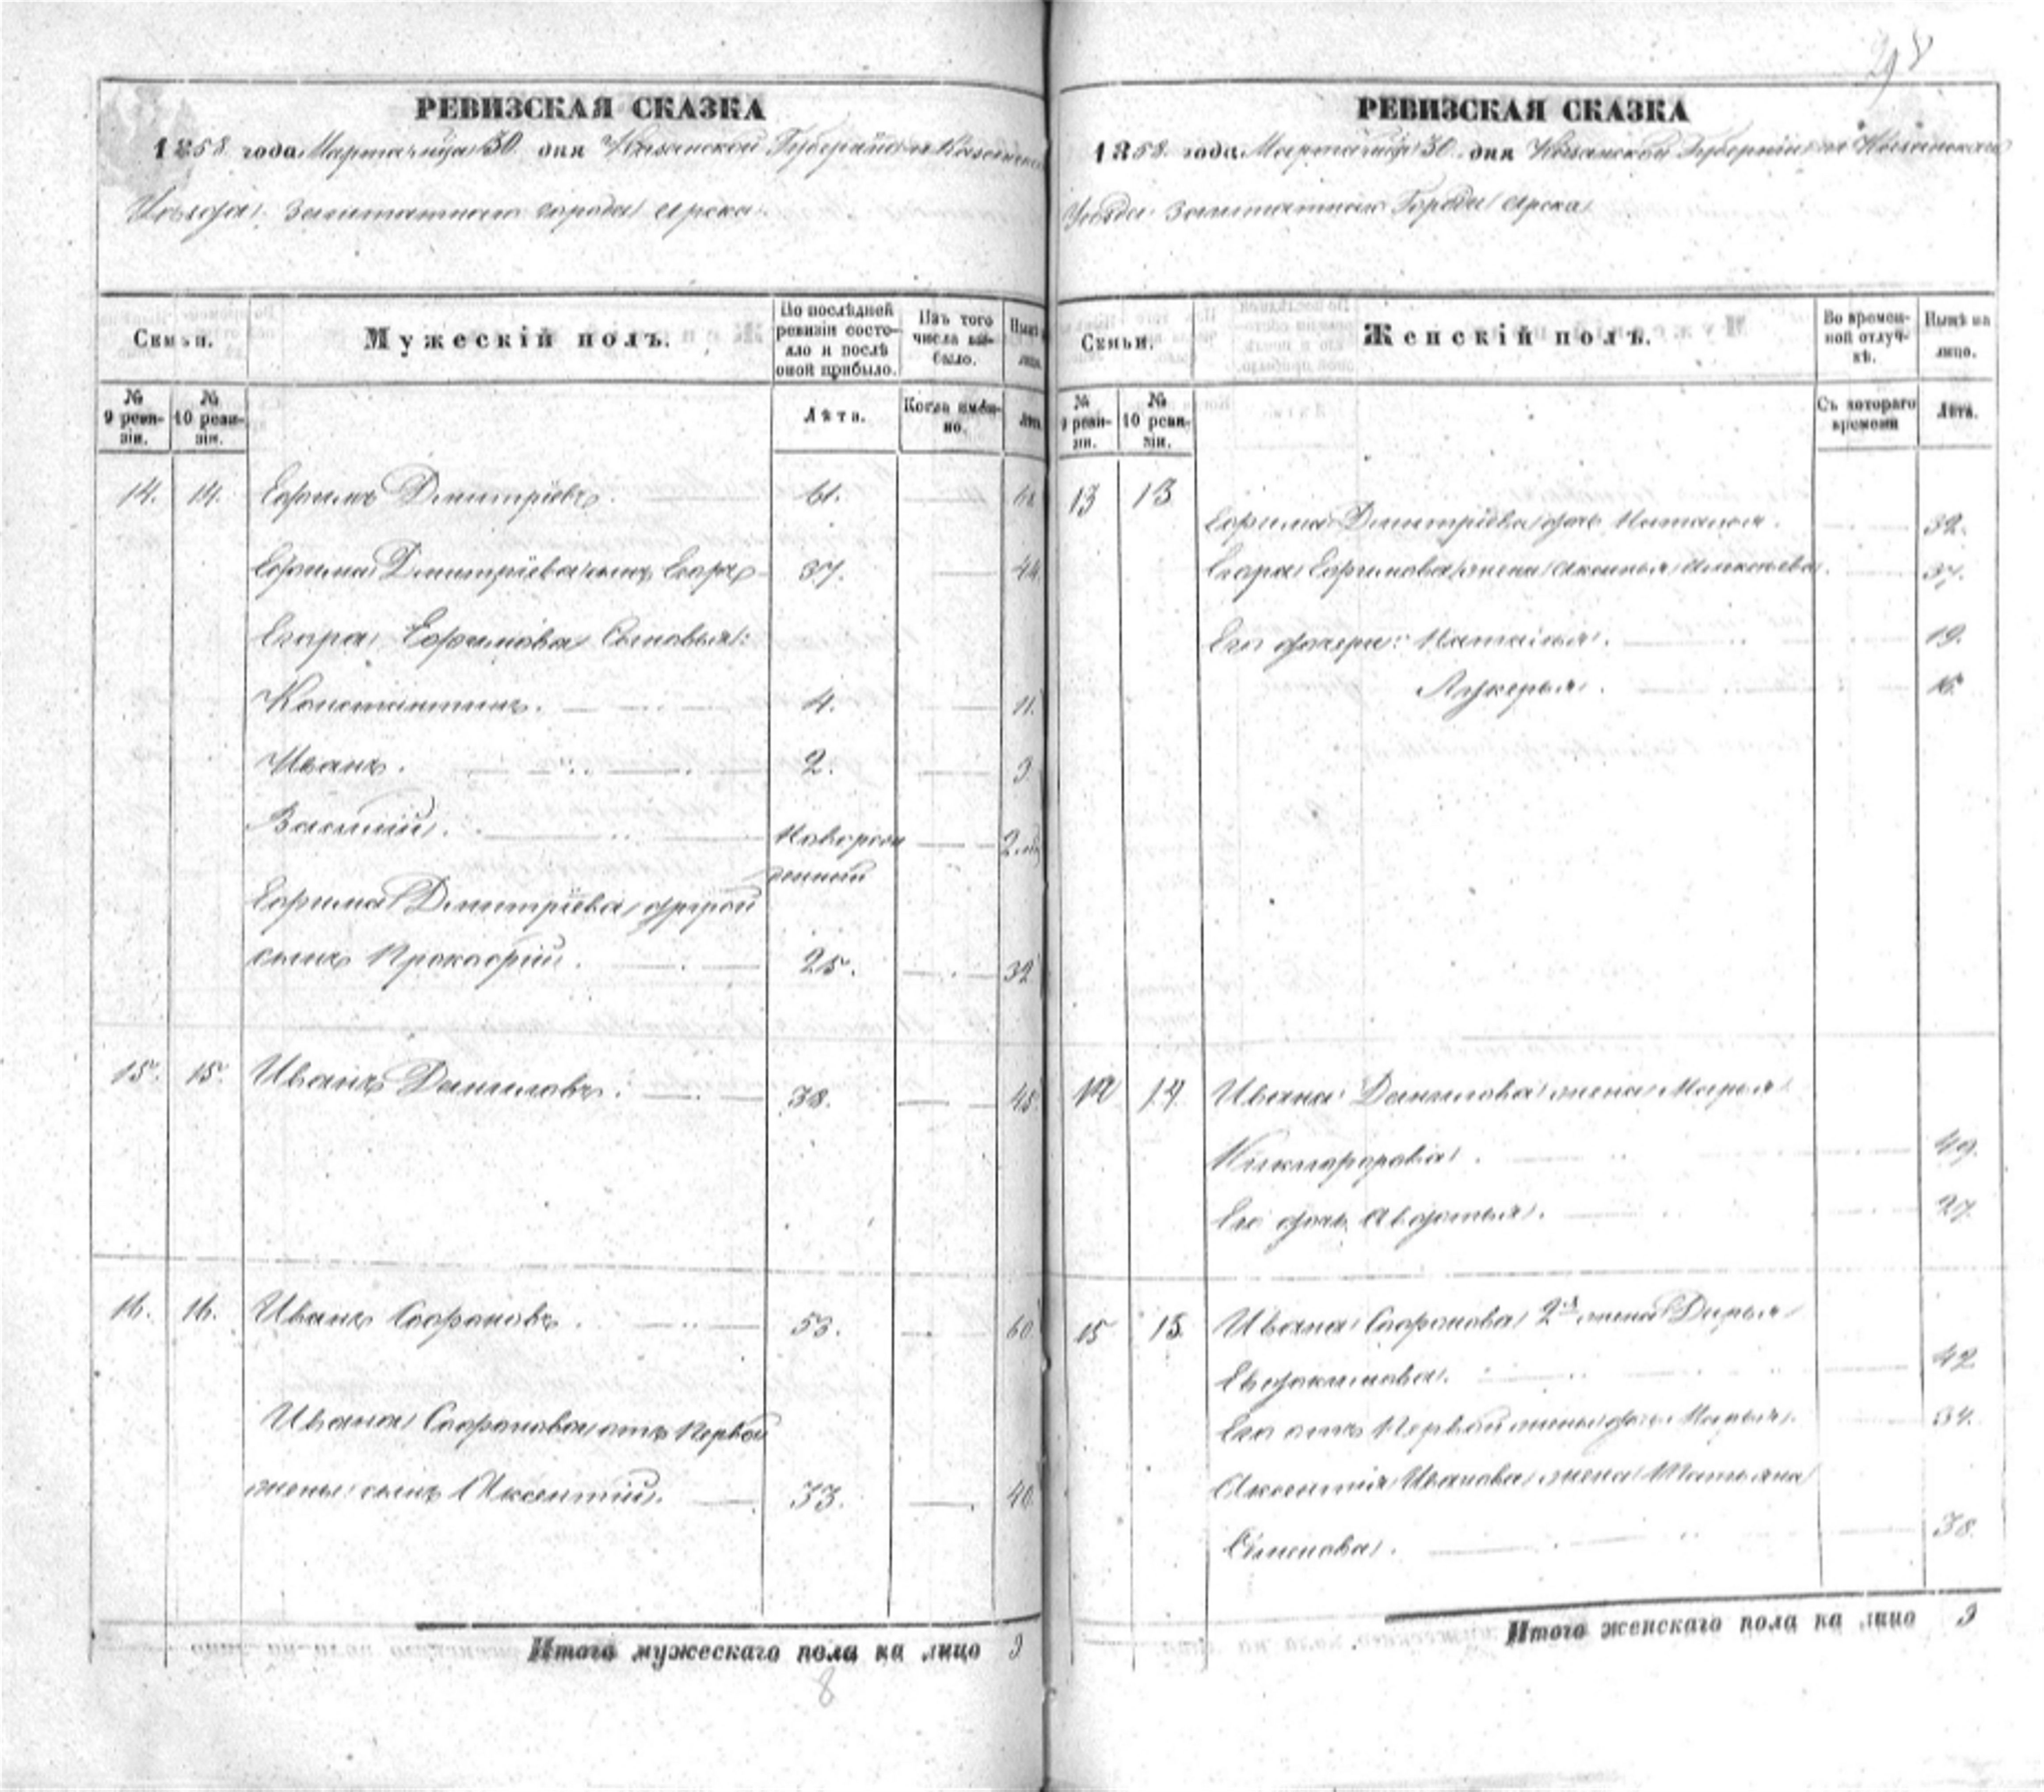 298
РЕВИЗСКАЯ СКАЗКА
1858 года Марта м-ца 30 дня Казанской Губернии Казанска
Уѣзда Заштатнаго города Арска
Семьи.
Мужескій полъ.
По послѣдней ревизіи состояло и послѣ оной прибыло.
Изъ того числа выбыло.
Нынѣ лицо.
№ 9 ревизіи.
№ 10 ревизіи.
Лѣта.
Когда именно.
Лѣта.
14. 14. Ефимъ Дмитріевъ. 61. 68
Ефима Дмитріева сынъ Егоръ 37. 44.
Егора Ефимова Сыновья:
Константинъ. 4. 11.
Иванъ. 2. 9
Василій. Новорож 2
денный
Ефима Дмитріева другой
сынъ Прокофій. 25. 32
15. 15. Иванъ Даниловъ. 38. 45
16. 16. Иванъ Софроновъ. 53. 60
Ивана Софронова отъ первой
жены сынъ Аксентій. 33. 40.
Итого мужескаго пола на лицо 9
8
РЕВИЗСКАЯ СКАЗКА
1858 года Марта м-ца 30 дня Казанской Губерніи Казанскаго
Уѣзда Заштатнаго Города Арска
Семьи.
Женскій полъ.
Во временной отлучкѣ.
Нынѣ на лицо.
№ 9 ревизіи.
№ 10 ревизіи.
Съ котораго времени
Лѣта.
13 13
Ефима Дмитріева дочь Наталья. 32.
Егора Ефимова жена Аксинья 37.
Его дочери: Наталья. 19.
Лукерья. 16.
14 14. Ивана Данилова жена Марья
Никифорова. 49.
Его дочь Авдотья. 27.
15 15. Ивана Софронова 2я жена Дарья
Евдокимова. 42
Его отъ Первой жены дочь Марья. 34.
Аксентія Иванова жена Татьяна
Семенова. 38.
Итого женскаго пола на лицо 9